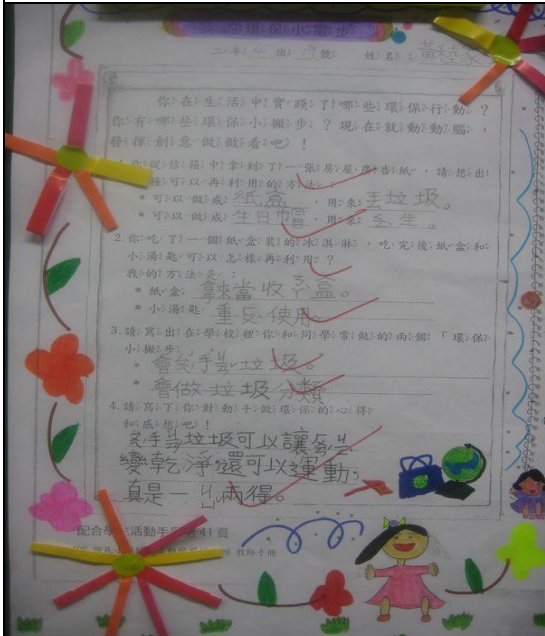 我的環保小撇步
二年4班19號 姓名：黃
你在生活中實踐了哪些環保行動？
你有哪些環保小撇步？現在就動動腦，
發揮創意做做看吧！
1.你從信箱中拿到了一張房屋廣告紙，請想出
種可以再利用的方法：
可以做成紙盒，用來丟垃圾。
可以做成生日帽，用來ㄑ生。
2.你吃了一個紙盒裝的冰淇淋，吃完後紙盒和
小湯匙可以怎樣再利用？
我的方法是：
紙盒：拿來當收ㄋㄚ盒。
小湯匙：重ㄈ使用。
3.請寫出在學校裡你和同學常做的兩個「環保
小撇步」
會 手 垃圾。
會做垃圾分類
4.請寫下你對動手做環保的心得
和感想吧！
手 垃圾可以讓
變乾淨，還可以運動，
真是一ㄐㄩ兩得。
配合學生活動手冊第41頁
教師手冊